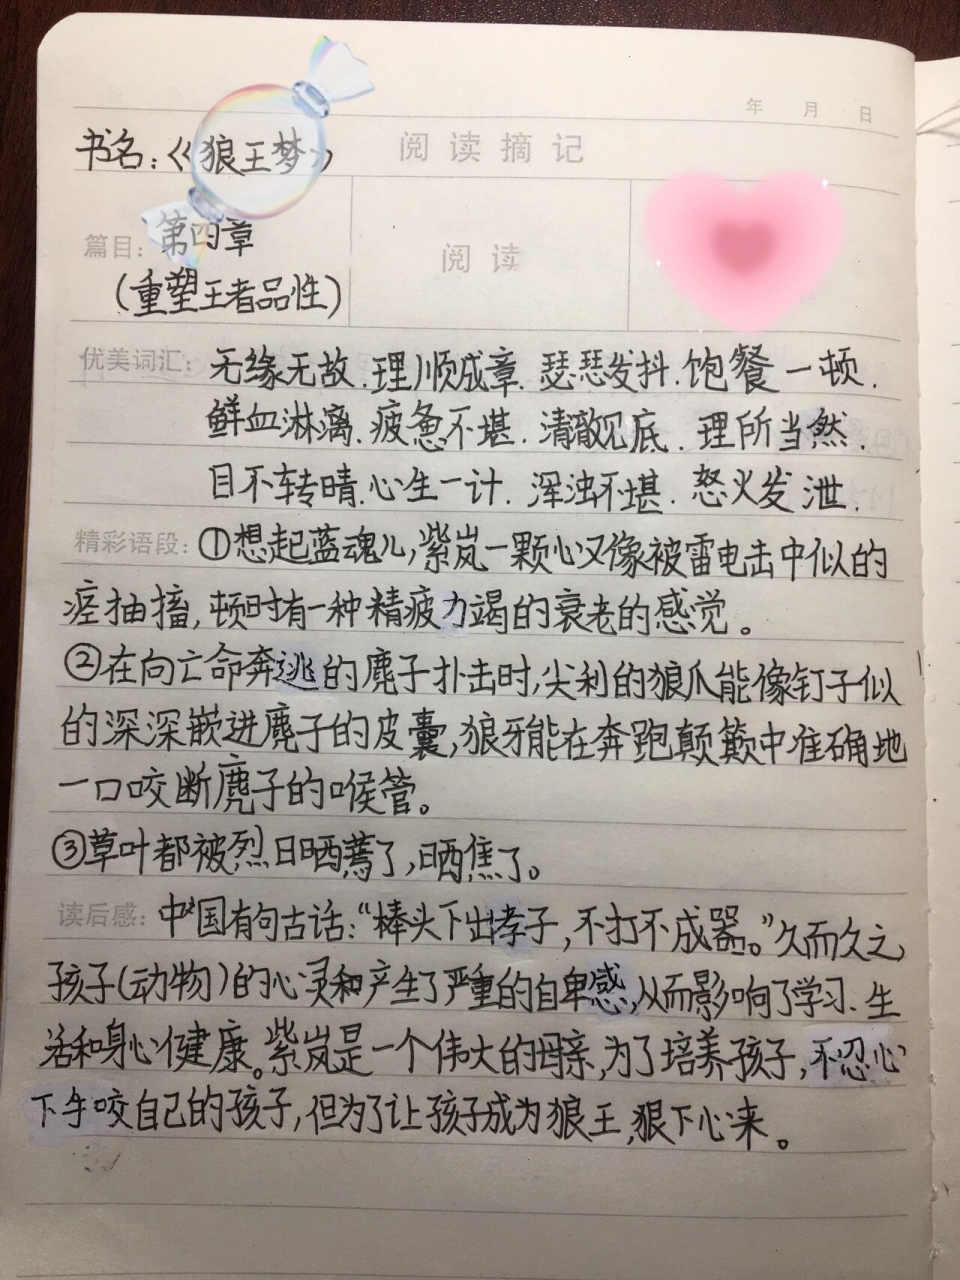 年 月 日
书名：《狼王梦》 阅读摘记
篇目： 第四章 阅读
（重塑王者品性）
优美词汇： 无缘无故．理顺成章．瑟瑟发抖．饱餐一顿．
鲜血淋漓．疲惫不堪．清澈见底．理所当然．
目不转晴．心生一计．浑浊不堪．怒火发泄．
精彩语段：①想起蓝魂儿，紫岚一颗心又像被雷电击中似的
痉抽搐，顿时有一种精疲力竭的衰老的感觉。
②在向亡命奔逃的麂子扑击时，尖利的狼爪能像钉子似
的深深嵌进麂子的皮囊，狼牙能在奔跑颠簸中准确地
一口咬断麂子的喉管。
③草叶都被烈日晒蔫了，晒焦了。
读后感： 中国有句古话：“棒头下出孝子，不打不成器。”久而久之，
孩子（动物）的心灵和产生了严重的自卑感，从而影响了学习．生
活和身心健康。紫岚是一个伟大的母亲，为了培养孩子，不忍心
下手咬自己的孩子，但为了让孩子成为狼王，狠下心来。